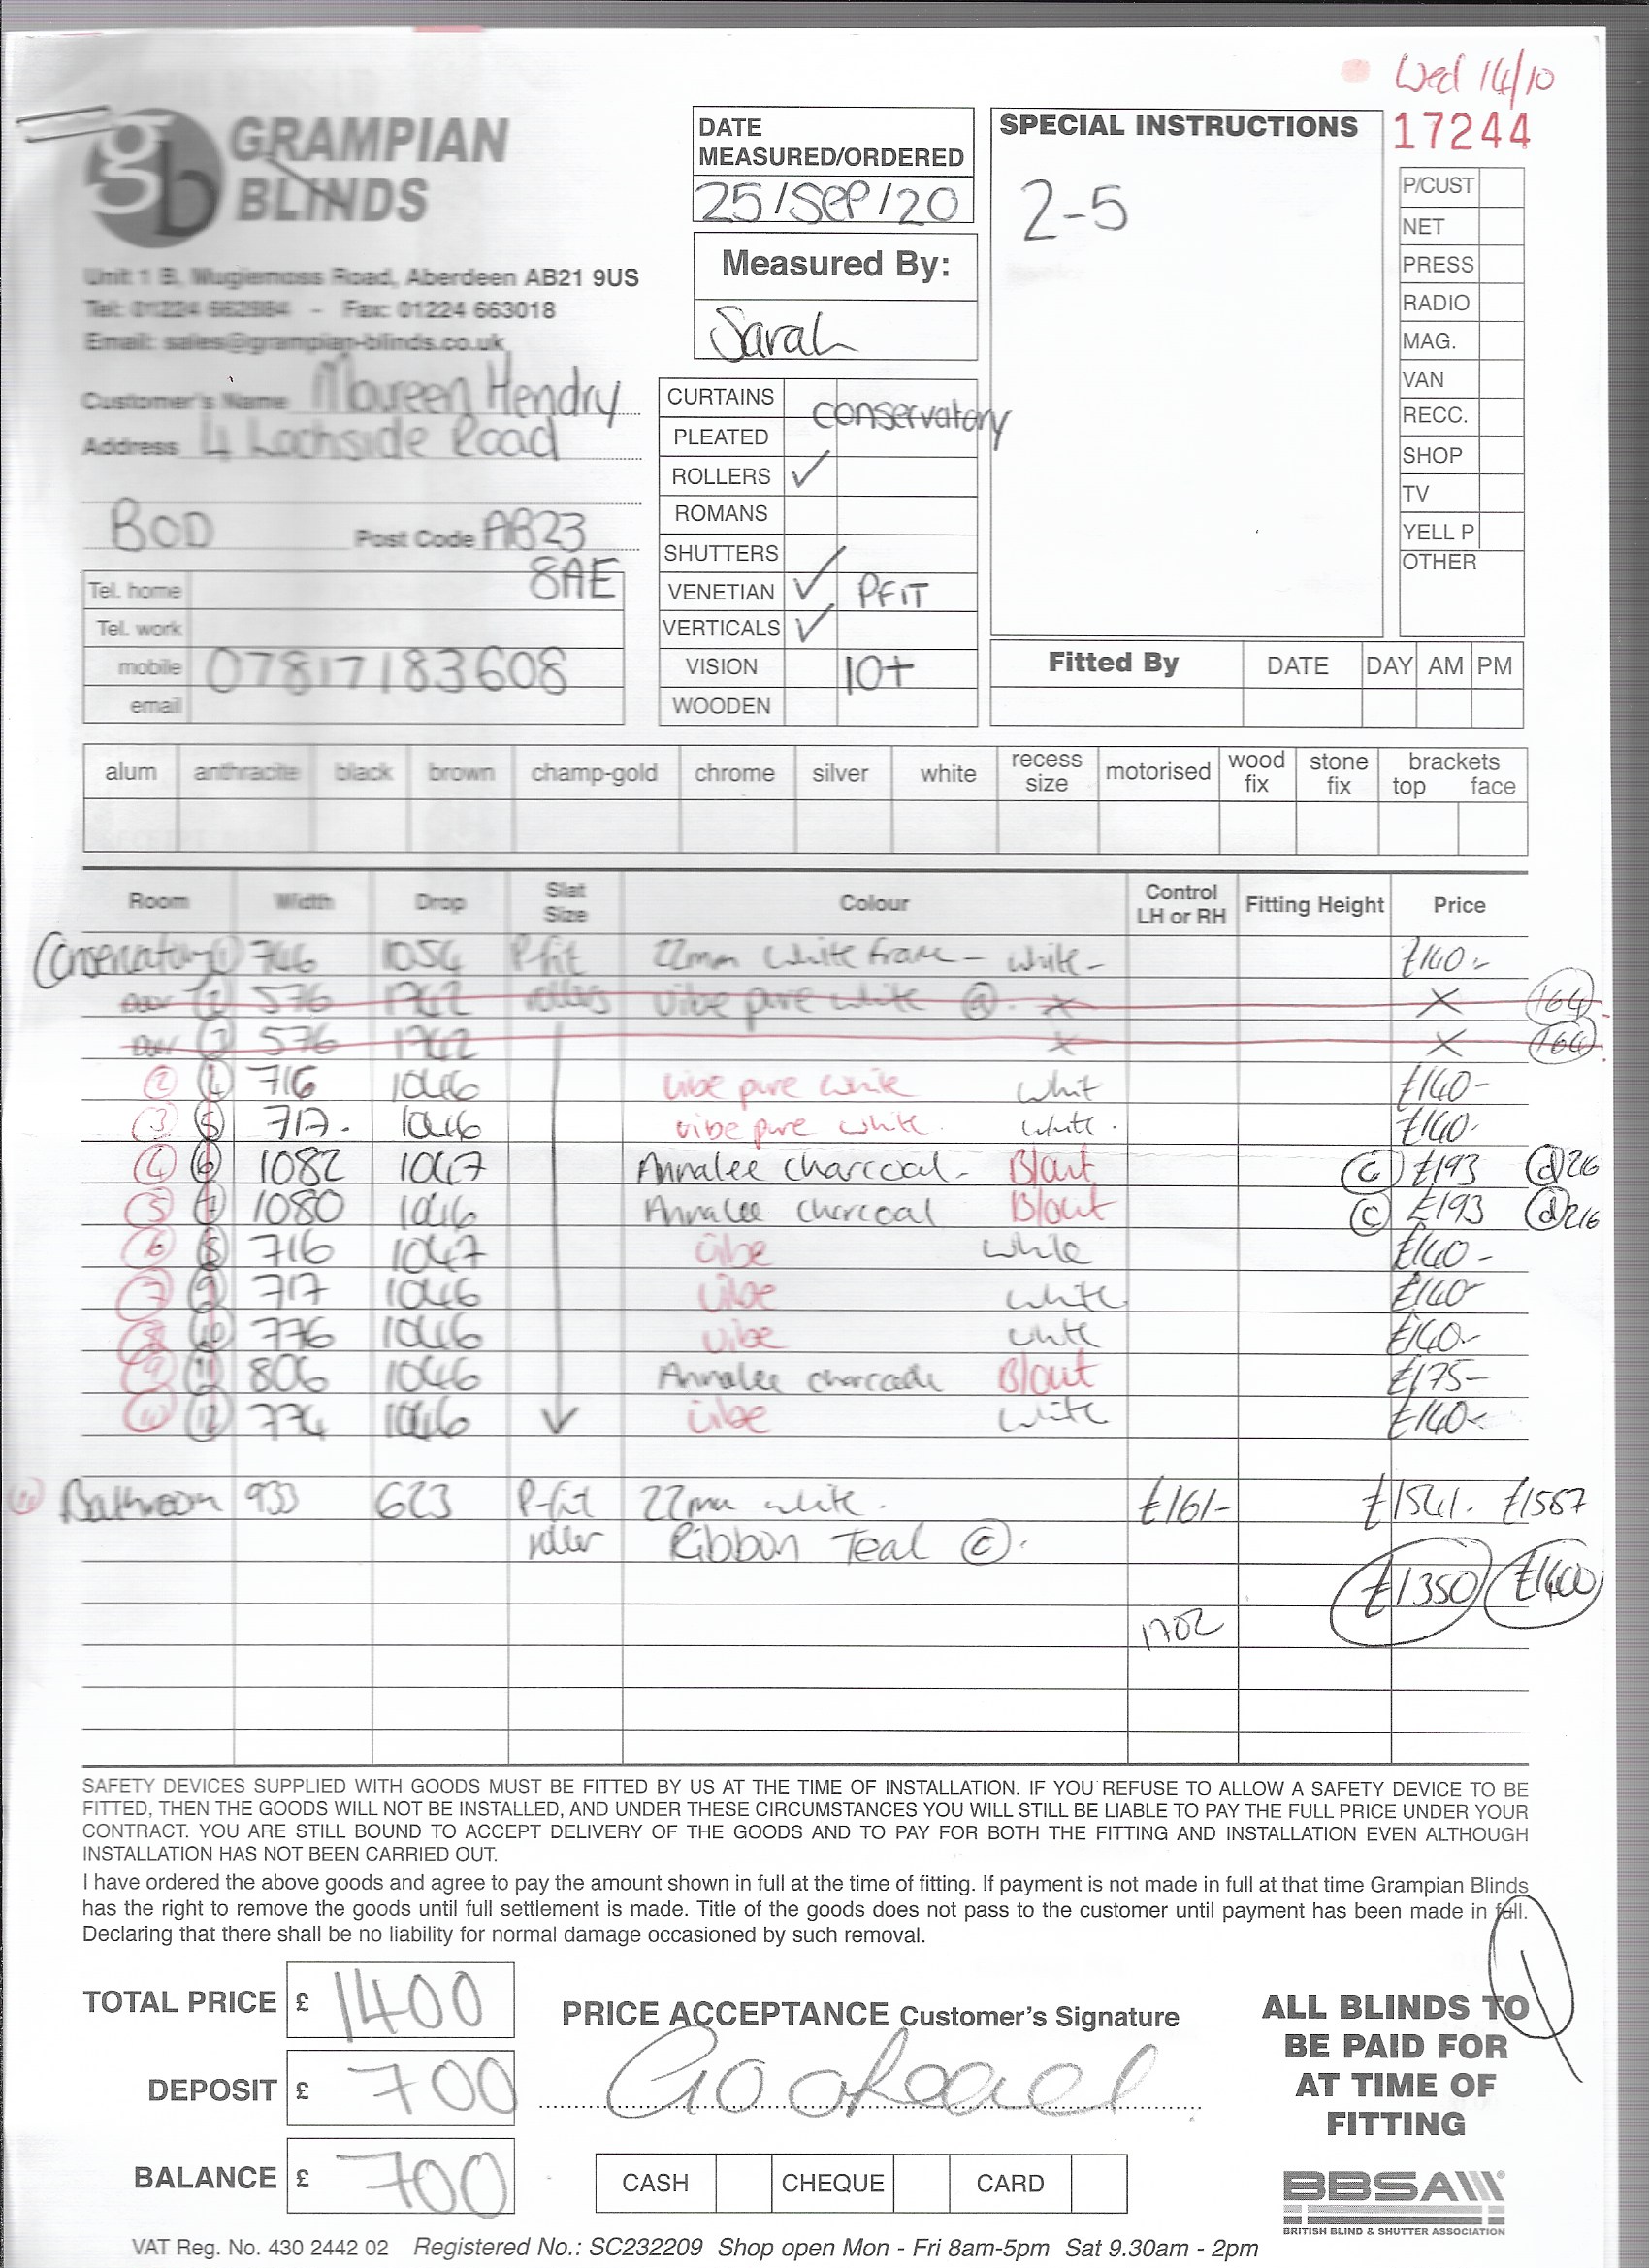 Wed 14/10
17244
gb GRAMPIAN BLINDS
Unit 1 B, Mugiemoss Road, Aberdeen AB21 9US
Tel: 01224 662984 - Fax: 01224 663018
Email: sales@grampian-blinds.co.uk
Customer's Name Maureen Hendry
Address 4 Lochside Road
BOD Post Code AB23
8AE
Tel. home
Tel. work
mobile 07817183608
email
DATE
MEASURED/ORDERED
25/SEP/20
Measured By:
Sarah
CURTAINS
conservatory
PLEATED
ROLLERS ✓
ROMANS
SHUTTERS
VENETIAN ✓ PFIT
VERTICALS ✓
VISION 10+
WOODEN
SPECIAL INSTRUCTIONS
2-5
P/CUST
NET
PRESS
RADIO
MAG.
VAN
RECC.
SHOP
TV
YELL P
OTHER
Fitted By DATE DAY AM PM
alum anthracite black brown champ-gold chrome silver white recess size motorised wood fix stone fix brackets top face
Room Width Drop Slat Size Colour Control LH or RH Fitting Height Price
Conservatory 1 746 1054 Pfit 22mm white frame - white - £140-
Door 2 576 1742 rollers vibe pure white @ x X 164
Door 3 576 1742 x X 164
2 4 716 1046 vibe pure white whit £140-
3 5 717. 1046 vibe pure white. white. £140-
4 6 1082 1047 Annalee charcoal - B/out C £193 d 216
5 7 1080 1046 Annalee charcoal B/out C £193 d 216
6 8 716 1047 vibe white £140-
7 9 717 1046 vibe white £140-
8 10 776 1046 vibe white £140-
9 11 806 1046 Annalee charcoal B/out £175-
10 12 774 1046 vibe white £140-
11 Bathroom 933 623 P-fit 22mm white. £161- £1541. £1587
roller Ribbon Teal C.
£1350 £1400
1702
SAFETY DEVICES SUPPLIED WITH GOODS MUST BE FITTED BY US AT THE TIME OF INSTALLATION. IF YOU REFUSE TO ALLOW A SAFETY DEVICE TO BE
FITTED, THEN THE GOODS WILL NOT BE INSTALLED, AND UNDER THESE CIRCUMSTANCES YOU WILL STILL BE LIABLE TO PAY THE FULL PRICE UNDER YOUR
CONTRACT. YOU ARE STILL BOUND TO ACCEPT DELIVERY OF THE GOODS AND TO PAY FOR BOTH THE FITTING AND INSTALLATION EVEN ALTHOUGH
INSTALLATION HAS NOT BEEN CARRIED OUT.
I have ordered the above goods and agree to pay the amount shown in full at the time of fitting. If payment is not made in full at that time Grampian Blinds
has the right to remove the goods until full settlement is made. Title of the goods does not pass to the customer until payment has been made in full.
Declaring that there shall be no liability for normal damage occasioned by such removal.
TOTAL PRICE £ 1400
DEPOSIT £ 700
BALANCE £ 700
PRICE ACCEPTANCE Customer's Signature
CASH CHEQUE CARD
ALL BLINDS TO
BE PAID FOR
AT TIME OF
FITTING
BBSA
BRITISH BLIND & SHUTTER ASSOCIATION
VAT Reg. No. 430 2442 02 Registered No.: SC232209 Shop open Mon - Fri 8am-5pm Sat 9.30am - 2pm